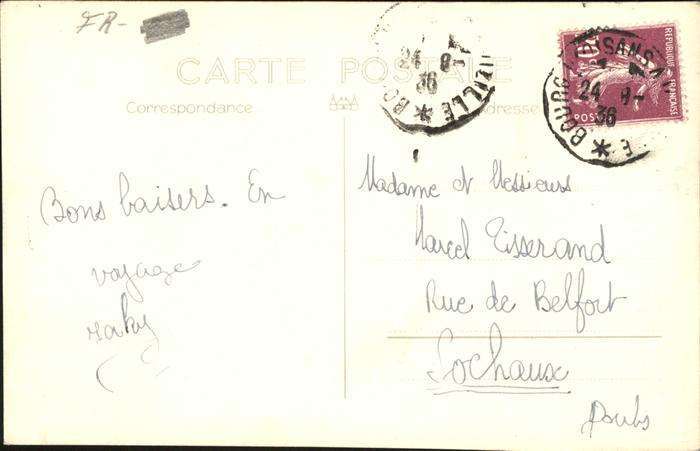 FR-
CARTE POSTALE
Correspondance
Adresse
24 -8
36
REPUBLIQUE FRANÇAISE
POSTES
24 8-
36
Bons baisers. En
voyage
Madame et Messieurs
Marcel Tisserand
Rue de Belfort
Sochaux
Doubs